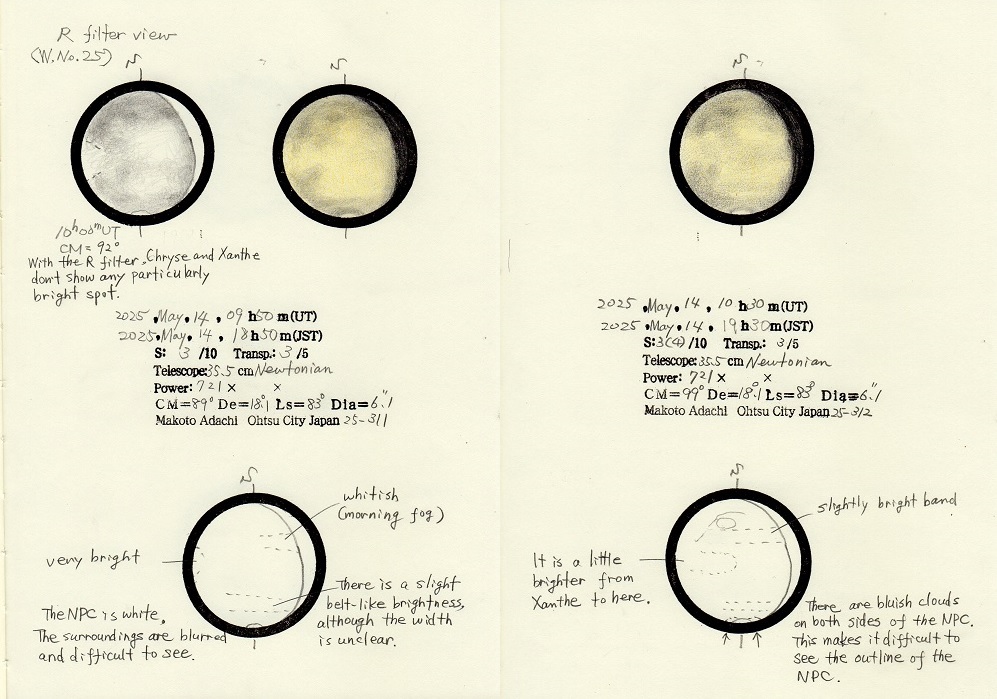 R filter view
(W.No.25)
S
S
10h00mUT
CM=92°
With the R filter, Chryse and Xanthe
don't show any particularly
bright spot.
2025 .May. 14 , 09 h50 m(UT)
2025 .May. 14 , 18h50m(JST)
S: 3 /10 Transp.: 3 /5
Telescope:35.5 cm Newtonian
Power: 721 × ×
CM=89° De=18°.1 Ls=83° Dia=6".1
Makoto Adachi Ohtsu City Japan 25-311
S
whitish
(morning fog)
very bright
There is a slight
belt-like brightness,
although the width
is unclear.
The NPC is white.
The surroundings are blurred
and difficult to see.
S
2025 .May. 14 , 10 h30 m(UT)
2025 .May. 14 , 19h30m(JST)
S:3(4)/10 Transp: 3/5
Telescope:35.5 cm Newtonian
Power: 721× ×
CM=99° De=18°.1 Ls=83° Dia=6".1
Makoto Adachi Ohtsu City Japan 25-312
S
slightly bright band
It is a little
brighter from
Xanthe to here.
There are bluish clouds
on both sides of the NPC.
This makes it difficult to
see the outline of the
NPC.